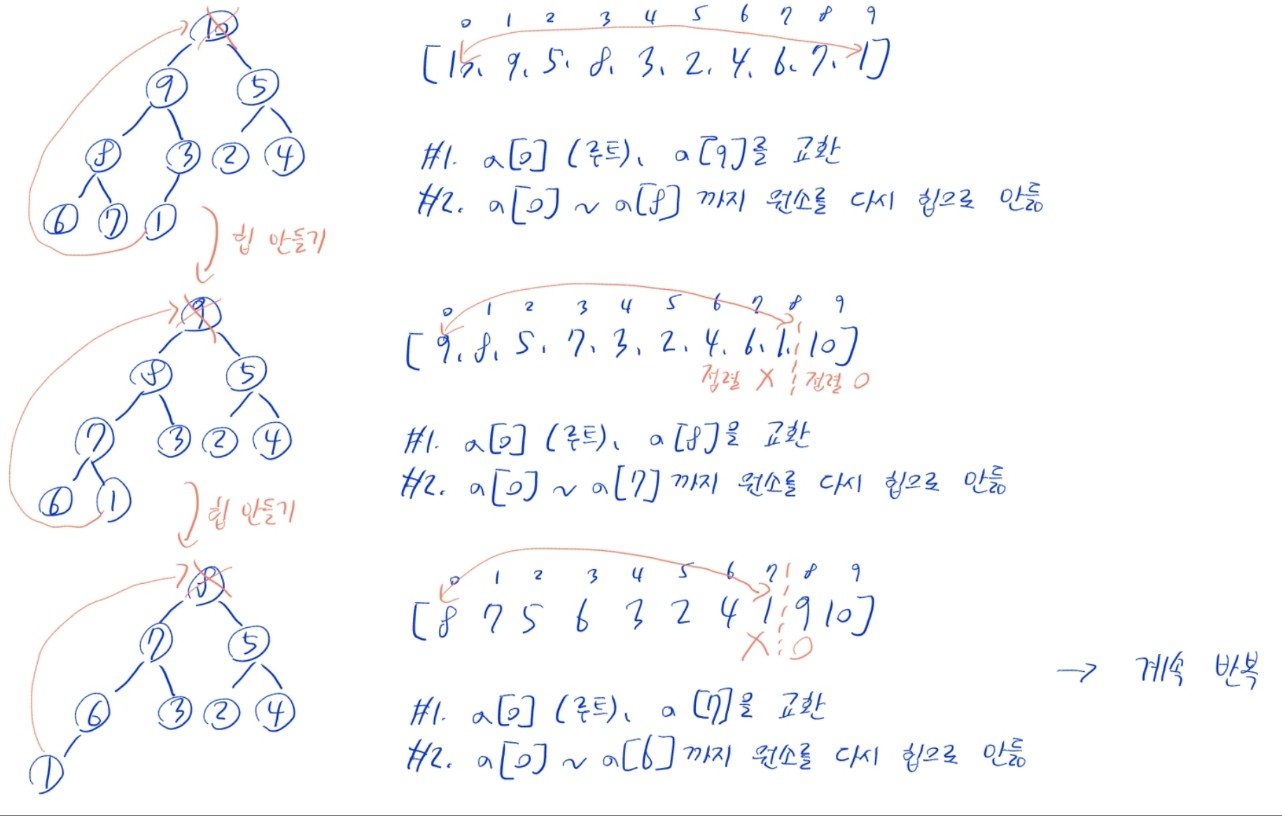 10
9 5
8 3 2 4
6 7 1
0 1 2 3 4 5 6 7 8 9
[10, 9, 5, 8, 3, 2, 4, 6, 7, 1]
#1. a[0] (루트), a[9]를 교환
#2. a[0] ~ a[8] 까지 원소를 다시 힙으로 만듦
힙 만들기
9
8 5
7 3 2 4
6 1
0 1 2 3 4 5 6 7 8 9
[9, 8, 5, 7, 3, 2, 4, 6, 1, 10]
정렬 X 정렬 O
#1. a[0] (루트), a[8]을 교환
#2. a[0] ~ a[7] 까지 원소를 다시 힙으로 만듦
힙 만들기
8
7 5
6 3 2 4
1
0 1 2 3 4 5 6 7 8 9
[8 7 5 6 3 2 4 1 9 10]
X O
#1. a[0] (루트), a[7]을 교환
#2. a[0] ~ a[6] 까지 원소를 다시 힙으로 만듦
→ 계속 반복